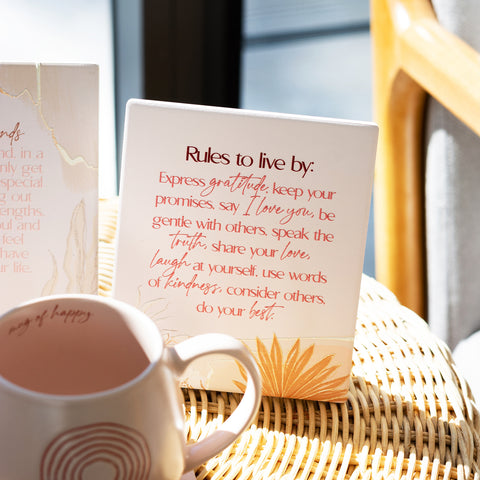 nds
nd, in a
only get
special
g out
engths.
oul and
feel
have
r life.
Rules to live by:
Express gratitude, keep your
promises, say I love you, be
gentle with others, speak the
truth, share your love,
laugh at yourself, use words
of kindness, consider others,
do your best.
mug of happy